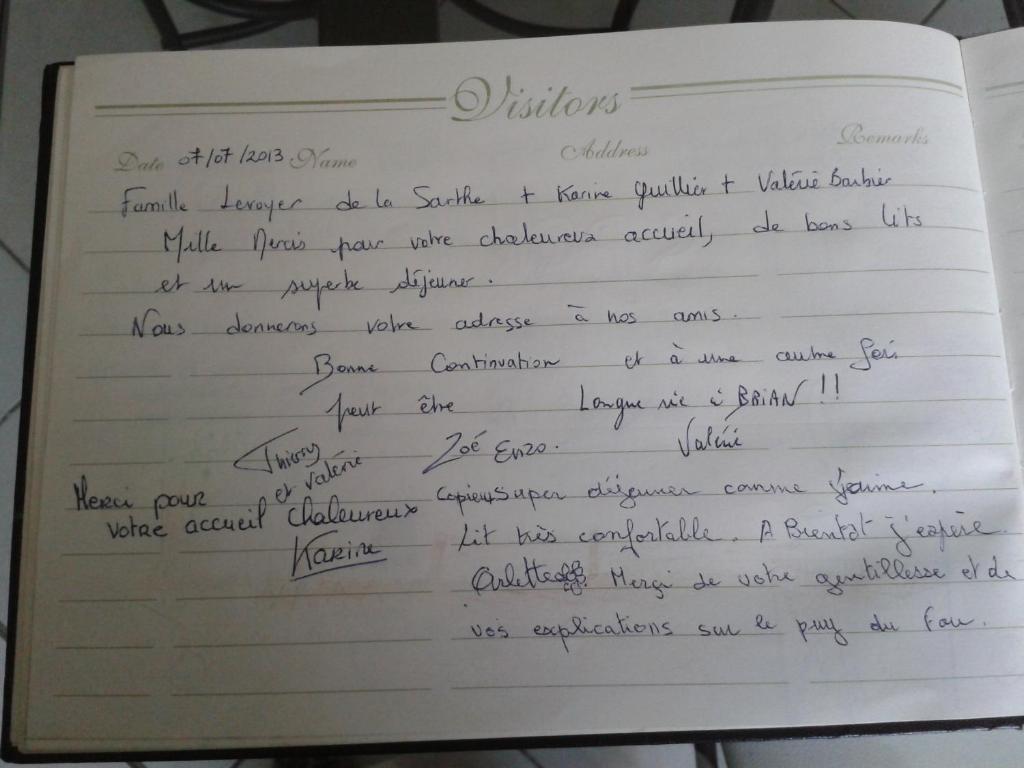 Visitors
Date 07/07/2013 Name Address Remarks
Famille Leroyer de la Sarthe + Karine Guillier + Valérie Barbier
Mille Mercis pour votre chaleureux accueil, de bons lits
et un superbe déjeuner.
Nous donnerons votre adresse à nos amis.
Bonne Continuation et à une autre fois
peut être Longue vie à BRIAN !!
Thierry et Valérie Zoé Enzo. Valérie
Merci pour
votre accueil chaleureux
Karine
Copieux super déjeuner comme j'aime.
Lit très confortable. A Bientot j'espère.
Arlette Merçi de votre gentillesse et de
vos explications sur le puy du Fou.